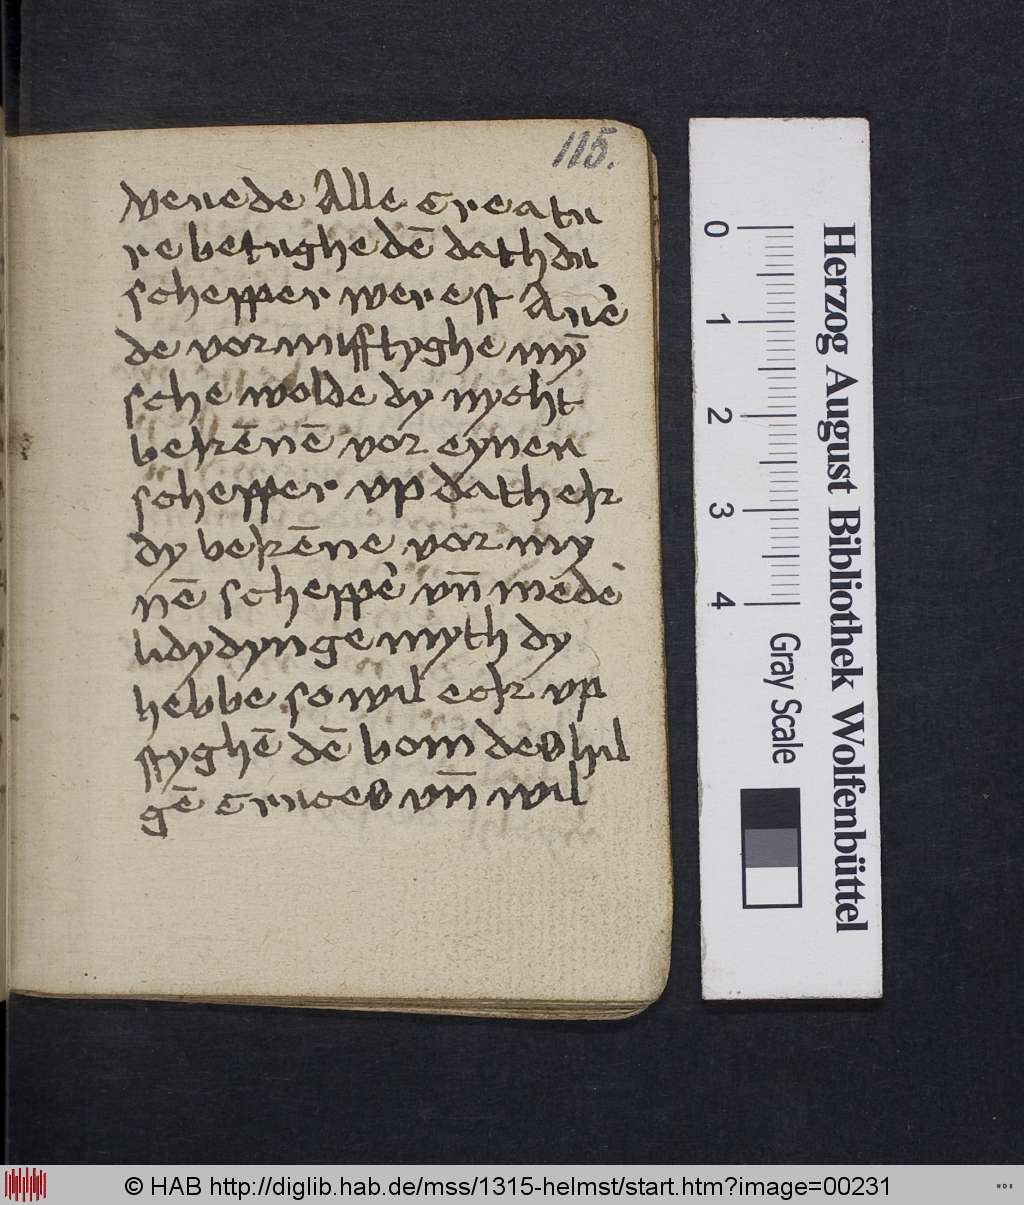 115.
Venede Alle creatu
re betughe dē dath du
schepper werest Auē
de vornufftyghe my̅
sche wolde dy nycht
bekēnē vor eynen
schepper vp dath ek
dy bekēne vor my
nē scheppē vn̄ mede
lidydynge myth dy
hebbe so wil eck vp
styghē dē bom des hil
gē cruces vn̄ wil
0
1
2
3
4
Gray Scale
Herzog August Bibliothek Wolfenbüttel
© HAB http://diglib.hab.de/mss/1315-helmst/start.htm?image=00231